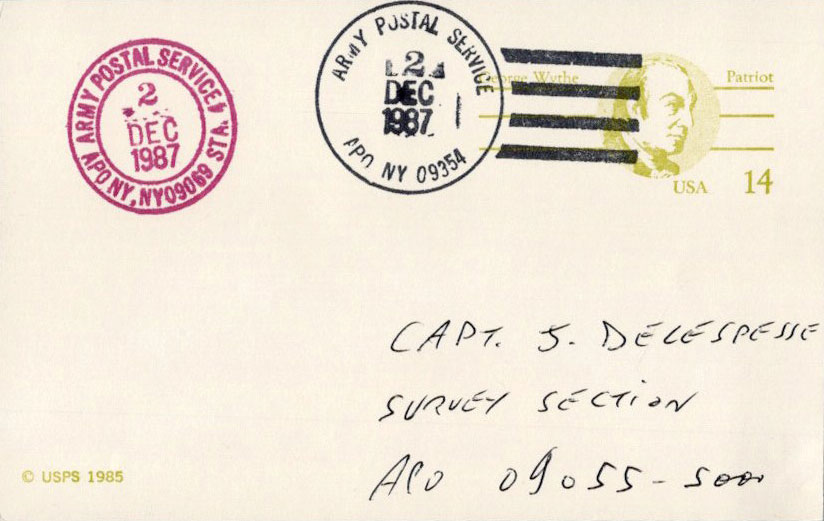 ARMY POSTAL SERVICE
2
DEC
1987
APO NY, NY 09069 STA.
ARMY POSTAL SERVICE
2
DEC
1987
APO NY 09354
George Wythe
Patriot
USA 14
CAPT. J. DELESPESSE
SURVEY SECTION
APO 09055-5000
© USPS 1985